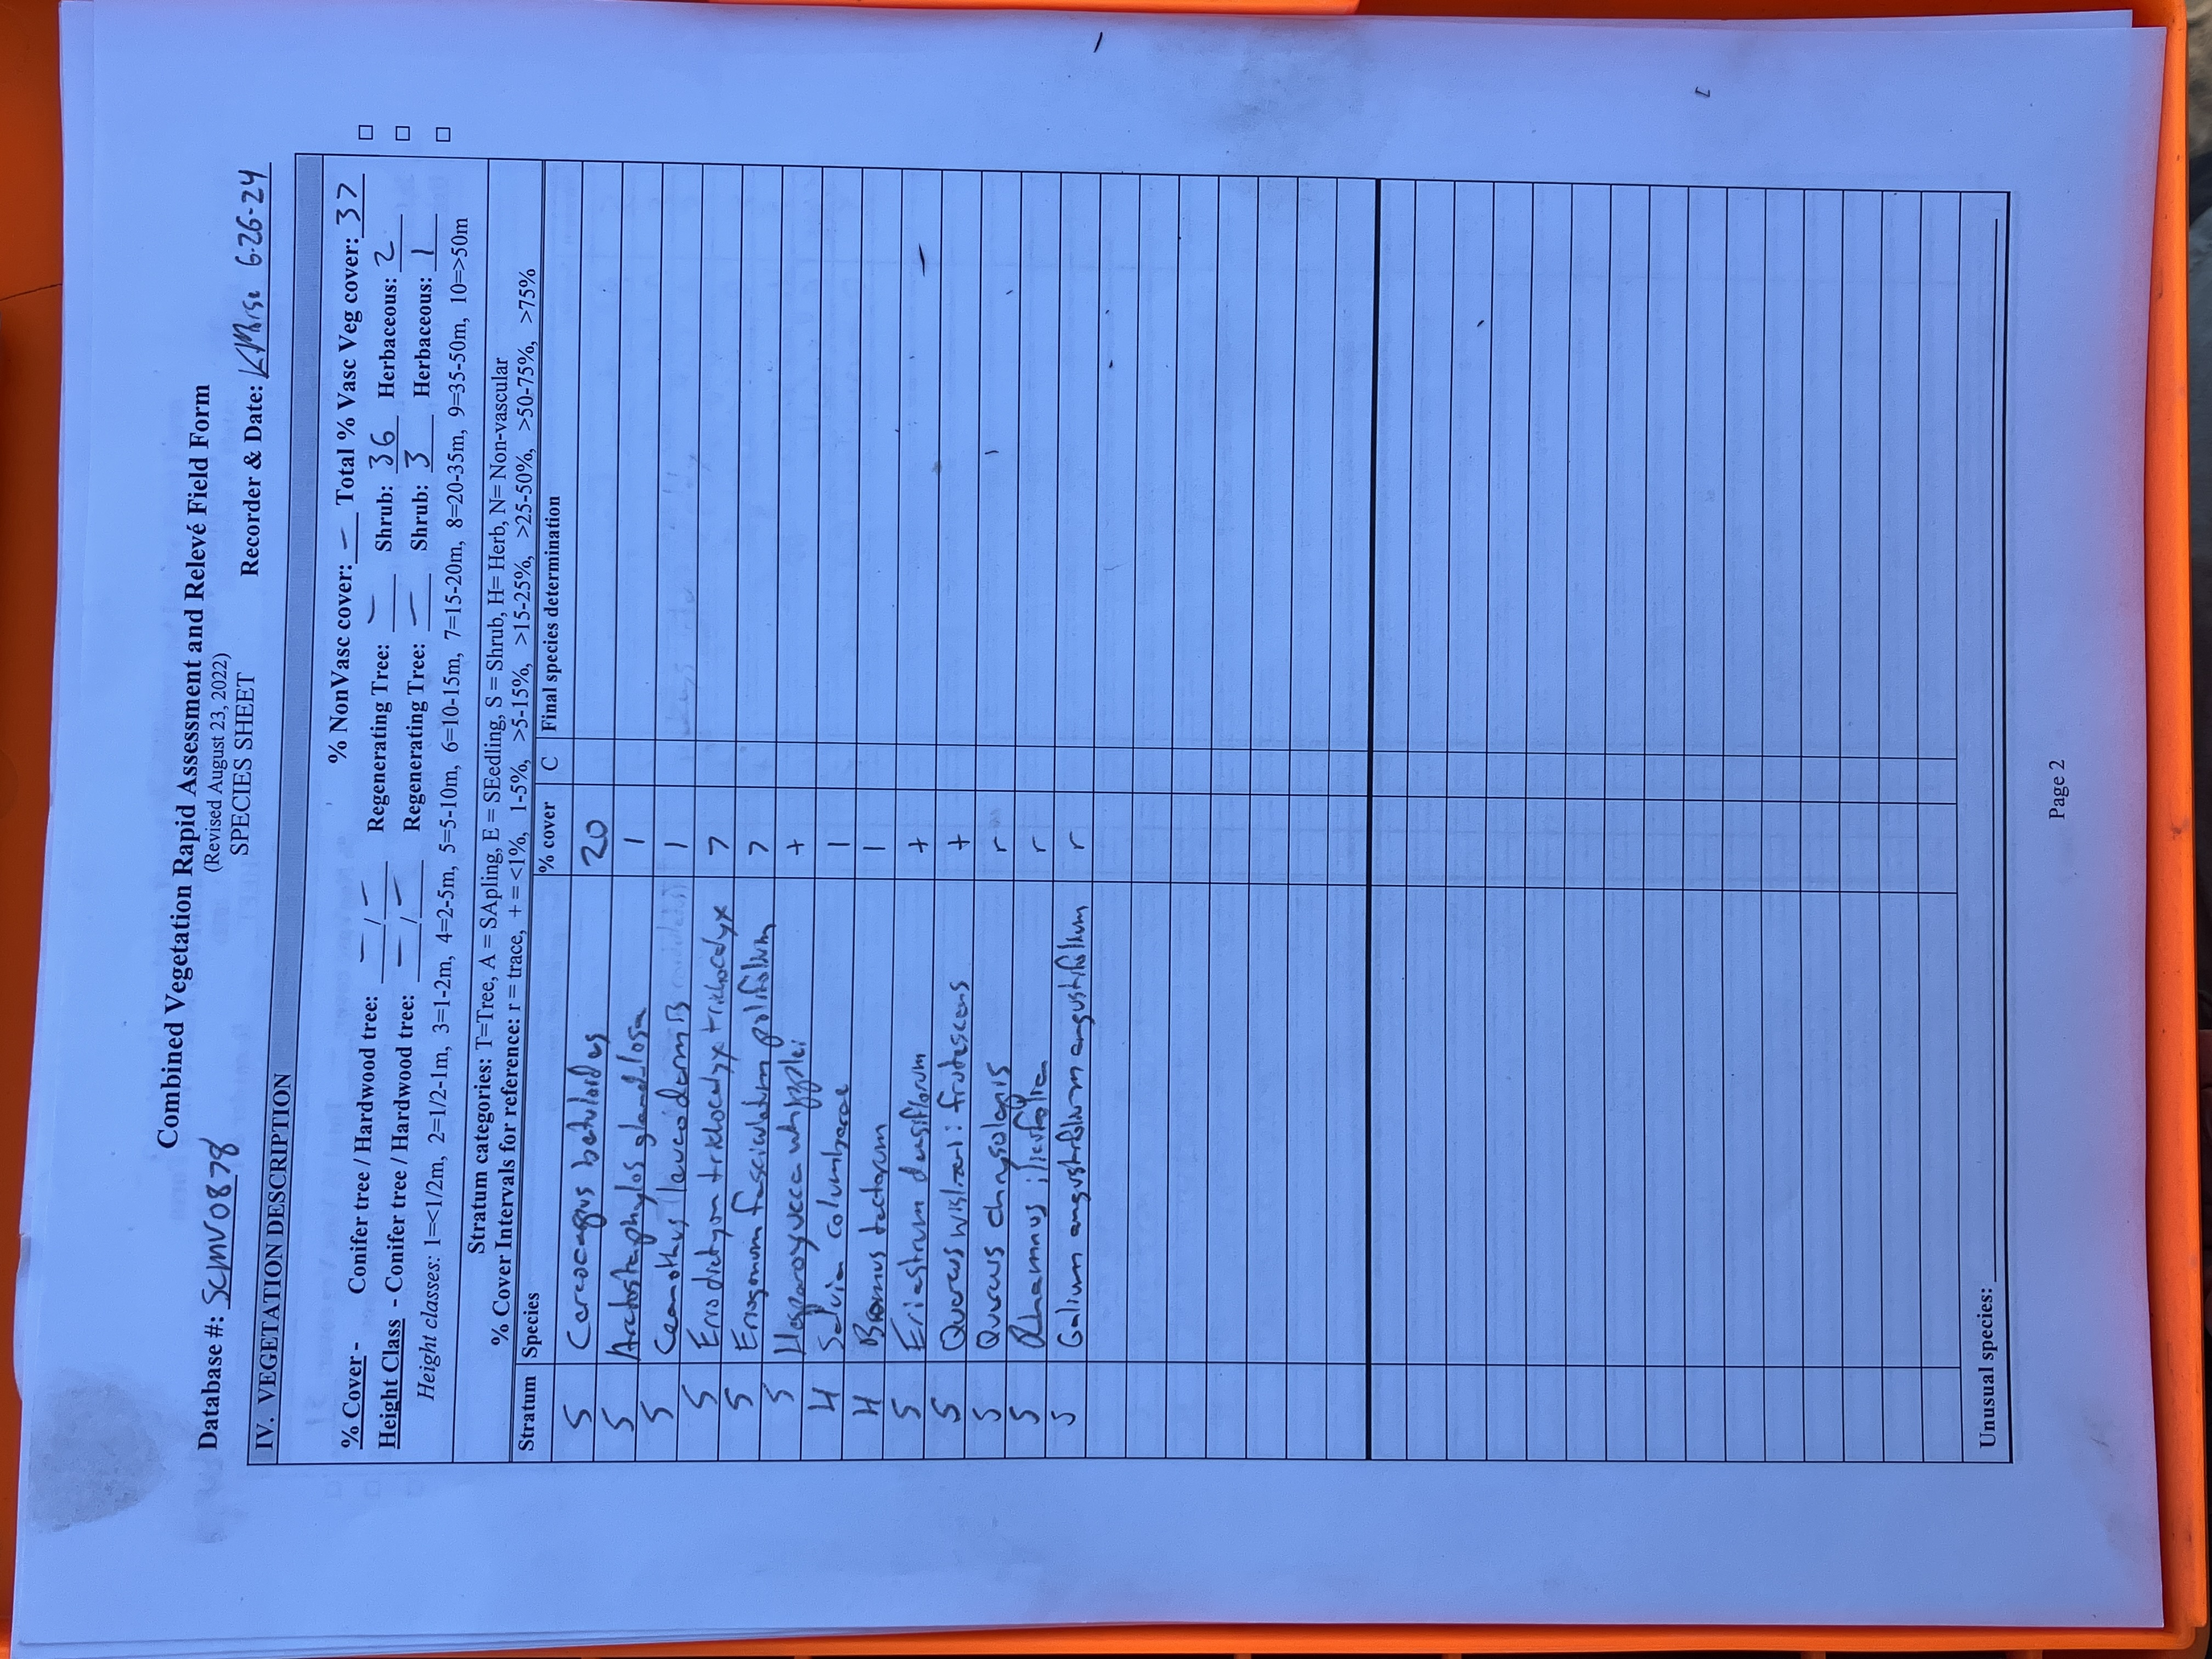 Combined Vegetation Rapid Assessment and Relevé Field Form
(Revised August 23, 2022)
SPECIES SHEET
Database #: SCMV0878 Recorder & Date: 6-26-24
IV. VEGETATION DESCRIPTION
% NonVasc cover: – Total % Vasc Veg cover: 37
% Cover - Conifer tree / Hardwood tree: – / – Regenerating Tree: – Shrub: 36 Herbaceous: 2
Height Class - Conifer tree / Hardwood tree: – / – Regenerating Tree: – Shrub: 3 Herbaceous: 1
Height classes: 1=<1/2m, 2=1/2-1m, 3=1-2m, 4=2-5m, 5=5-10m, 6=10-15m, 7=15-20m, 8=20-35m, 9=35-50m, 10=>50m
Stratum categories: T=Tree, A = SApling, E = SEedling, S = Shrub, H= Herb, N= Non-vascular
% Cover Intervals for reference: r = trace, + = <1%, 1-5%, >5-15%, >15-25%, >25-50%, >50-75%, >75%
Stratum Species % cover C Final species determination
S Cercocarpus betuloides 20
S Arctostaphylos glandulosa 1
S Ceanothus leucodermis 1
S Eriodictyon trichocalyx trichocalyx 7
S Eriogonum fasciculatum polifolium 7
S Hesperoyucca whipplei +
H Salvia columbariae 1
H Bromus tectorum 1
S Eriastrum densiflorum +
S Quercus wislizeni: frutescens +
S Quercus chrysolepis r
S Rhamnus ilicifolia r
S Galium angustifolium angustifolium r
Unusual species:
Page 2